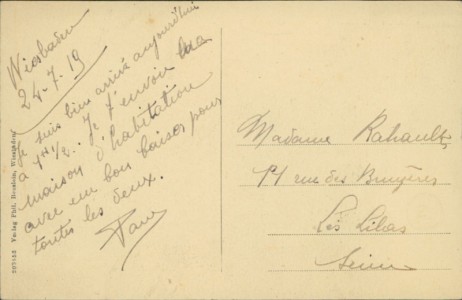 Wiesbaden
24-7-19
Je suis bien arrivé aujourd'hui
à 1H 1/2.. Je t'envoie ma
maison d'habitation
avec un bon baiser pour
toutes les deux.
Paul
Madame Rahault
11 rue des Bruyères
Les Lilas
Seine
Verlag Phil. Wiesbaden